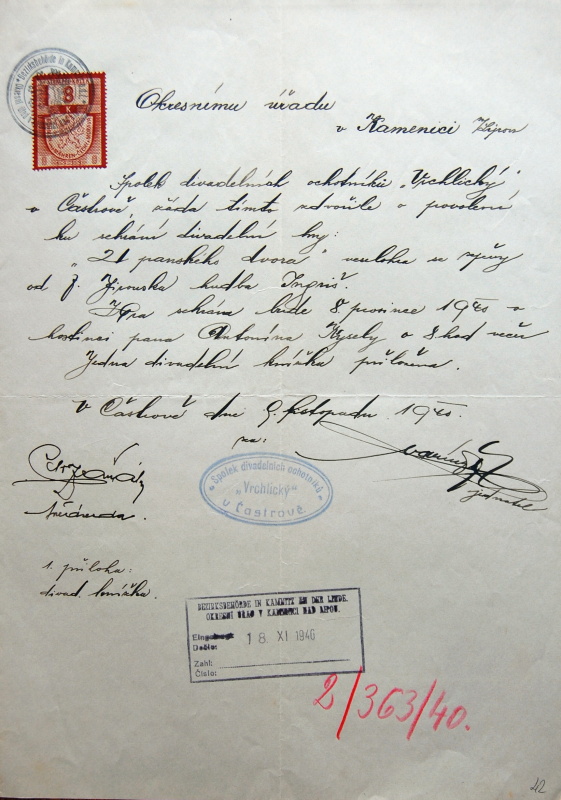 8
K
BÖHMEN
MÄHREN
8 8
Okresnímu úřadu
v Kamenici n/Lipou
Spolek divadelních ochotníků „Vrchlický“
v Častrově, žádá tímto zdvořile o povolení
ku sehrání divadelní hry:
„Z panského dvora“ veselohra se zpěvy
od F. Jirouska hudba Ingriš.
Hra sehrána bude 8 prosince 1940 v
hostinci pana Antonína Kysely o 8 hod večer
Jedna divadelní knížka přiložena.
V Častrově dne 9. listopadu 1940.
za:
jednatel
předseda.
Spolek divadelních ochotníků
„Vrchlický“
v Častrově.
1. příloha:
divad. knížka.
BEZIRKSBEHÖRDE IN KAMNITZ AN DER LINDE.
OKRESNÍ ÚŘAD V KAMENICI NAD LIPOU.
Eingelangt
Došlo: 18 XI 1940
Zahl:
Číslo:
2/363/40.
42